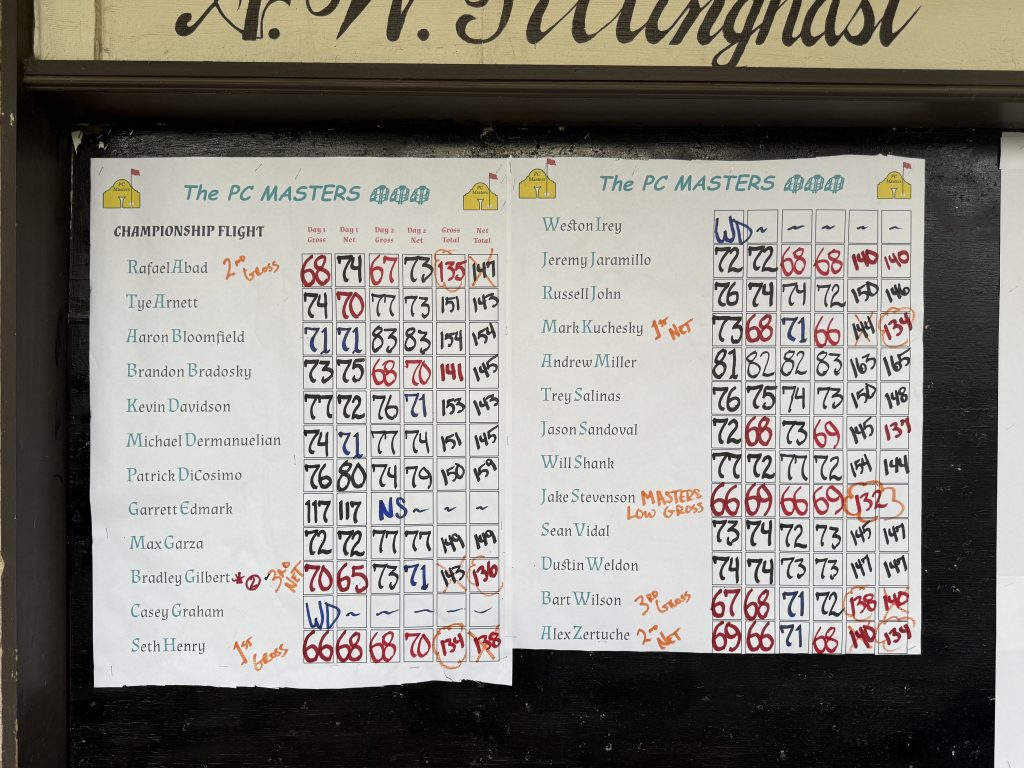 A. W. Tillinghast
PC Masters
The PC MASTERS
CHAMPIONSHIP FLIGHT Day 1 Gross Day 1 Net Day 2 Gross Day 2 Net Gross Total Net Total
Rafael Abad 2ND GROSS 68 74 67 73 135 147
Tye Arnett 74 70 77 73 151 143
Aaron Bloomfield 71 71 83 83 154 154
Brandon Bradosky 73 75 68 70 141 145
Kevin Davidson 77 72 76 71 153 143
Michael Dermanuelian 74 71 77 74 151 145
Patrick DiCosimo 76 80 74 79 150 159
Garrett Edmark 117 117 NS ~ ~ ~
Max Garza 72 72 77 77 149 149
Bradley Gilbert * 2 3RD NET 70 65 73 71 143 136
Casey Graham WD ~ ~ ~ ~ ~
Seth Henry 1ST GROSS 66 68 68 70 134 138
PC Masters
The PC MASTERS
Weston Irey WD ~ ~ ~ ~ ~
Jeremy Jaramillo 72 72 68 68 140 140
Russell John 76 74 74 72 150 146
Mark Kuchesky 1ST NET 73 68 71 66 144 134
Andrew Miller 81 82 82 83 163 165
Trey Salinas 76 75 74 73 150 148
Jason Sandoval 72 68 73 69 145 137
Will Shank 77 72 77 72 154 144
Jake Stevenson MASTERS LOW GROSS 66 69 66 69 132
Sean Vidal 73 74 72 73 145 147
Dustin Weldon 74 74 73 73 147 147
Bart Wilson 3RD GROSS 67 68 71 72 138 140
Alex Zertuche 2ND NET 69 66 71 68 140 134